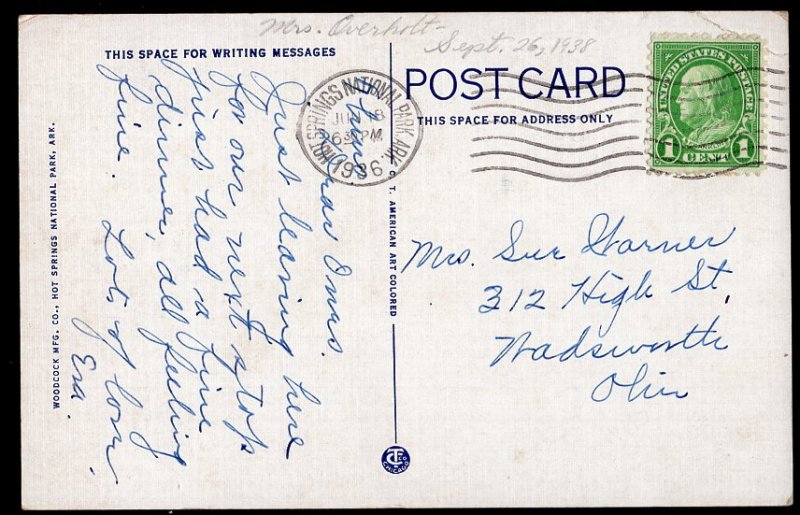 Mrs. Overholt
Sept. 26, 1938
THIS SPACE FOR WRITING MESSAGES
POST CARD
THIS SPACE FOR ADDRESS ONLY
HOT SPRINGS NATIONAL PARK, ARK.
1936
UNITED STATES POSTAGE
FRANKLIN
1 CENT 1
Just leaving here
for our next stop
just had a fine
dinner, all feeling
fine. Lots of love.
Eva.
Mrs. Sue Warner
312 High St.
Wadsworth
Ohio
WOODCOCK MFG. CO., HOT SPRINGS NATIONAL PARK, ARK.
C. T. AMERICAN ART COLORED
CHICAGO